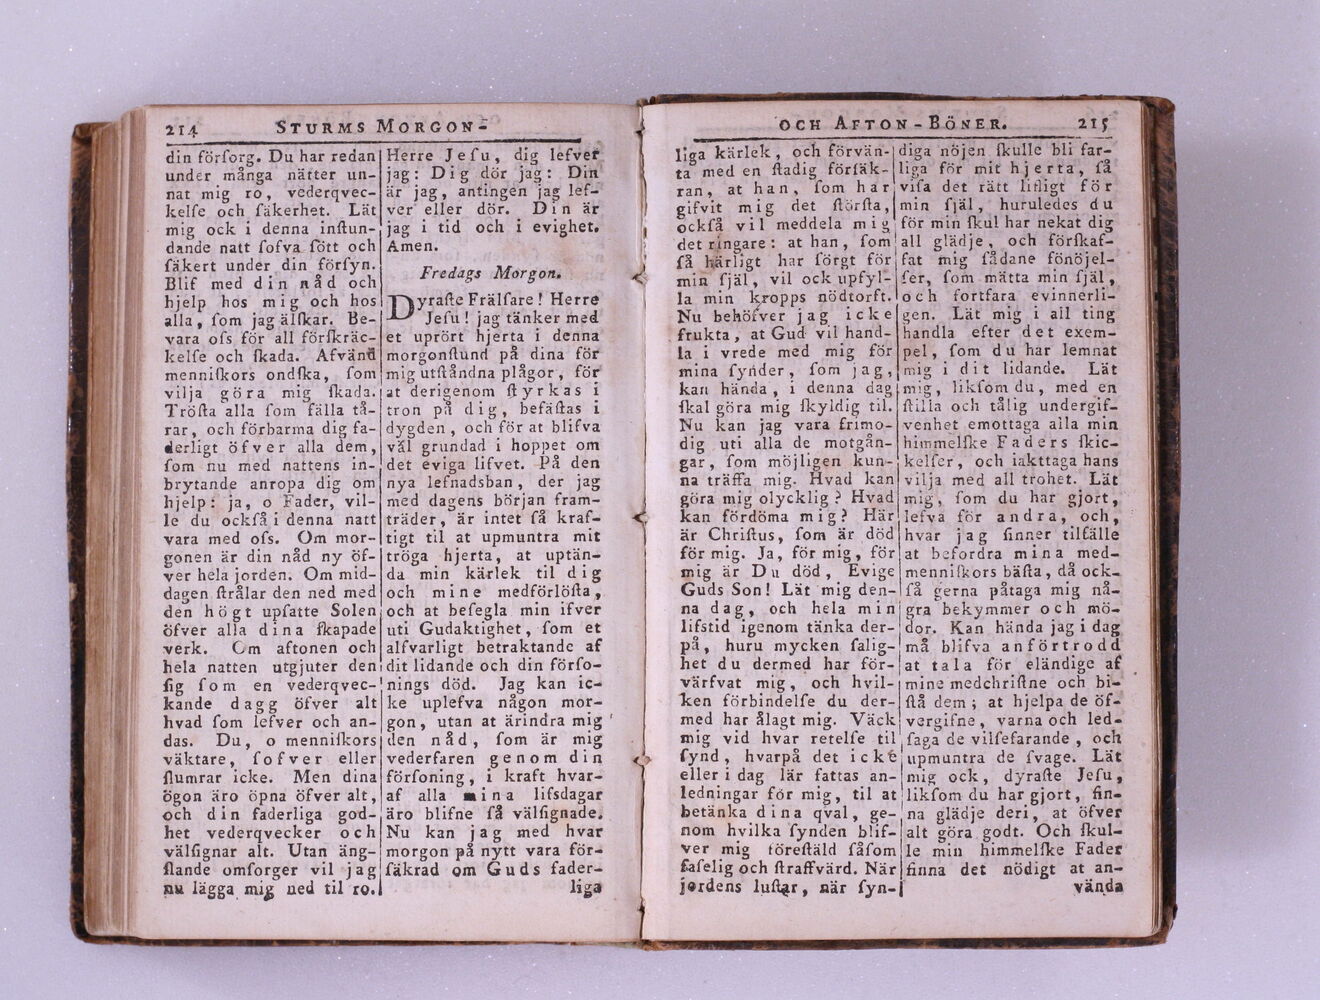 214 STURMS MORGON-
din förſorg. Du har redan
under många nätter un-
nat mig ro, vederqvec-
kelſe och ſäkerhet. Låt
mig ock i denna inſtun-
dande natt ſofva ſött och
ſäkert under din förſyn.
Blif med din nåd och
hjelp hos mig och hos
alla, ſom jag älſkar. Be-
vara oſs för all förſkräc-
kelſe och ſkada. Afvänd
menniſkors ondſka, ſom
vilja göra mig ſkada.
Tröſta alla ſom fälla tå-
rar, och förbarma dig fa-
derligt öfver alla dem,
ſom nu med nattens in-
brytande anropa dig om
hjelp: ja, o Fader, vil-
le du ockſå i denna natt
vara med oſs. Om mor-
gonen är din nåd ny öf-
ver hela jorden. Om mid-
dagen ſtrålar den ned med
den högt upſatte Solen
öfver alla dina ſkapade
verk. Om aftonen och
hela natten utgjuter den
ſig ſom en vederqvec-
kande dagg öfver alt
hvad ſom lefver och an-
das. Du, o menniſkors
väktare, ſofver eller
ſlumrar icke. Men dina
ögon äro öpna öfver alt,
och din faderliga god-
het vederqvecker och
välſignar alt. Utan äng-
ſlande omſorger vil jag
nu lägga mig ned til ro.
Herre Jeſu, dig lefver
jag: Dig dör jag: Din
är jag, antingen jag lef-
ver eller dör. Din är
jag i tid och i evighet.
Amen.
Fredags Morgon.
Dyraſte Frälſare! Herre
Jeſu! jag tänker med
et uprört hjerta i denna
morgonſtund på dina för
mig utſtåndna plågor, för
at derigenom ſtyrkas i
tron på dig, befäſtas i
dygden, och för at blifva
väl grundad i hoppet om
det eviga lifvet. På den
nya lefnadsban, der jag
med dagens början fram-
träder, är intet ſå kraf-
tigt til at upmuntra mit
tröga hjerta, at uptän-
da min kärlek til dig
och mine medförlöſta,
och at beſegla min ifver
uti Gudaktighet, ſom et
alfvarligt betraktande af
dit lidande och din förſo-
nings död. Jag kan ic-
ke uplefva någon mor-
gon, utan at ärindra mig
den nåd, ſom är mig
vederfaren genom din
förſoning, i kraft hvar-
af alla mina lifsdagar
äro blifne ſå välſignade.
Nu kan jag med hvar
morgon på nytt vara för-
ſäkrad om Guds fader-
liga
OCH AFTON-BÖNER. 215
liga kärlek, och förvän-
ta med en ſtadig förſäk-
ran, at han, ſom har
gifvit mig det ſtörſta,
ockſå vil meddela mig
det ringare: at han, ſom
ſå härligt har ſörgt för
min ſjäl, vil ock upfyl-
la min kropps nödtorft.
Nu behöfver jag icke
frukta, at Gud vil hand-
la i vrede med mig för
mina ſynder, ſom jag,
kan hända, i denna dag
ſkal göra mig ſkyldig til.
Nu kan jag vara frimo-
dig uti alla de motgån-
gar, ſom möjligen kun-
na träffa mig. Hvad kan
göra mig olycklig? Hvad
kan fördöma mig? Här
är Chriſtus, ſom är död
för mig. Ja, för mig, för
mig är Du död, Evige
Guds Son! Låt mig den-
na dag, och hela min
lifstid igenom tänka der-
på, huru mycken ſalig-
het du dermed har för-
värfvat mig, och hvil-
ken förbindelſe du der-
med har ålagt mig. Väck
mig vid hvar retelſe til
ſynd, hvarpå det icke
eller i dag lär fattas an-
ledningar för mig, til at
betänka dina qval, ge-
nom hvilka ſynden blif-
ver mig föreſtäld ſåſom
faſelig och ſtraffvärd. När
jordens luſtar, när ſyn-
diga nöjen ſkulle bli far-
liga för mit hjerta, ſå
viſa det rätt lifligt för
min ſjäl, huruledes du
för min ſkul har nekat dig
all glädje, och förſkaf-
fat mig ſådane fönöjel-
ſer, ſom mätta min ſjäl,
och fortfara evinnerli-
gen. Låt mig i all ting
handla efter det exem-
pel, ſom du har lemnat
mig i dit lidande. Låt
mig, likſom du, med en
ſtilla och tålig undergif-
venhet emottaga alla min
himmelſke Faders ſkic-
kelſer, och iakttaga hans
vilja med all trohet. Låt
mig, ſom du har gjort,
lefva för andra, och,
hvar jag finner tilfälle
at befordra mina med-
menniſkors bäſta, då ock-
ſå gerna påtaga mig nå-
gra bekymmer och mö-
dor. Kan hända jag i dag
må blifva anförtrodd
at tala för eländige af
mine medchriſtne och bi-
ſtå dem; at hjelpa de öf-
vergifne, varna och led-
ſaga de vilſefarande, och
upmuntra de ſvage. Låt
mig ock, dyraſte Jeſu,
likſom du har gjort, fin-
na glädje deri, at öfver
alt göra godt. Och ſkul-
le min himmelſke Fader
finna det nödigt at an-
vända